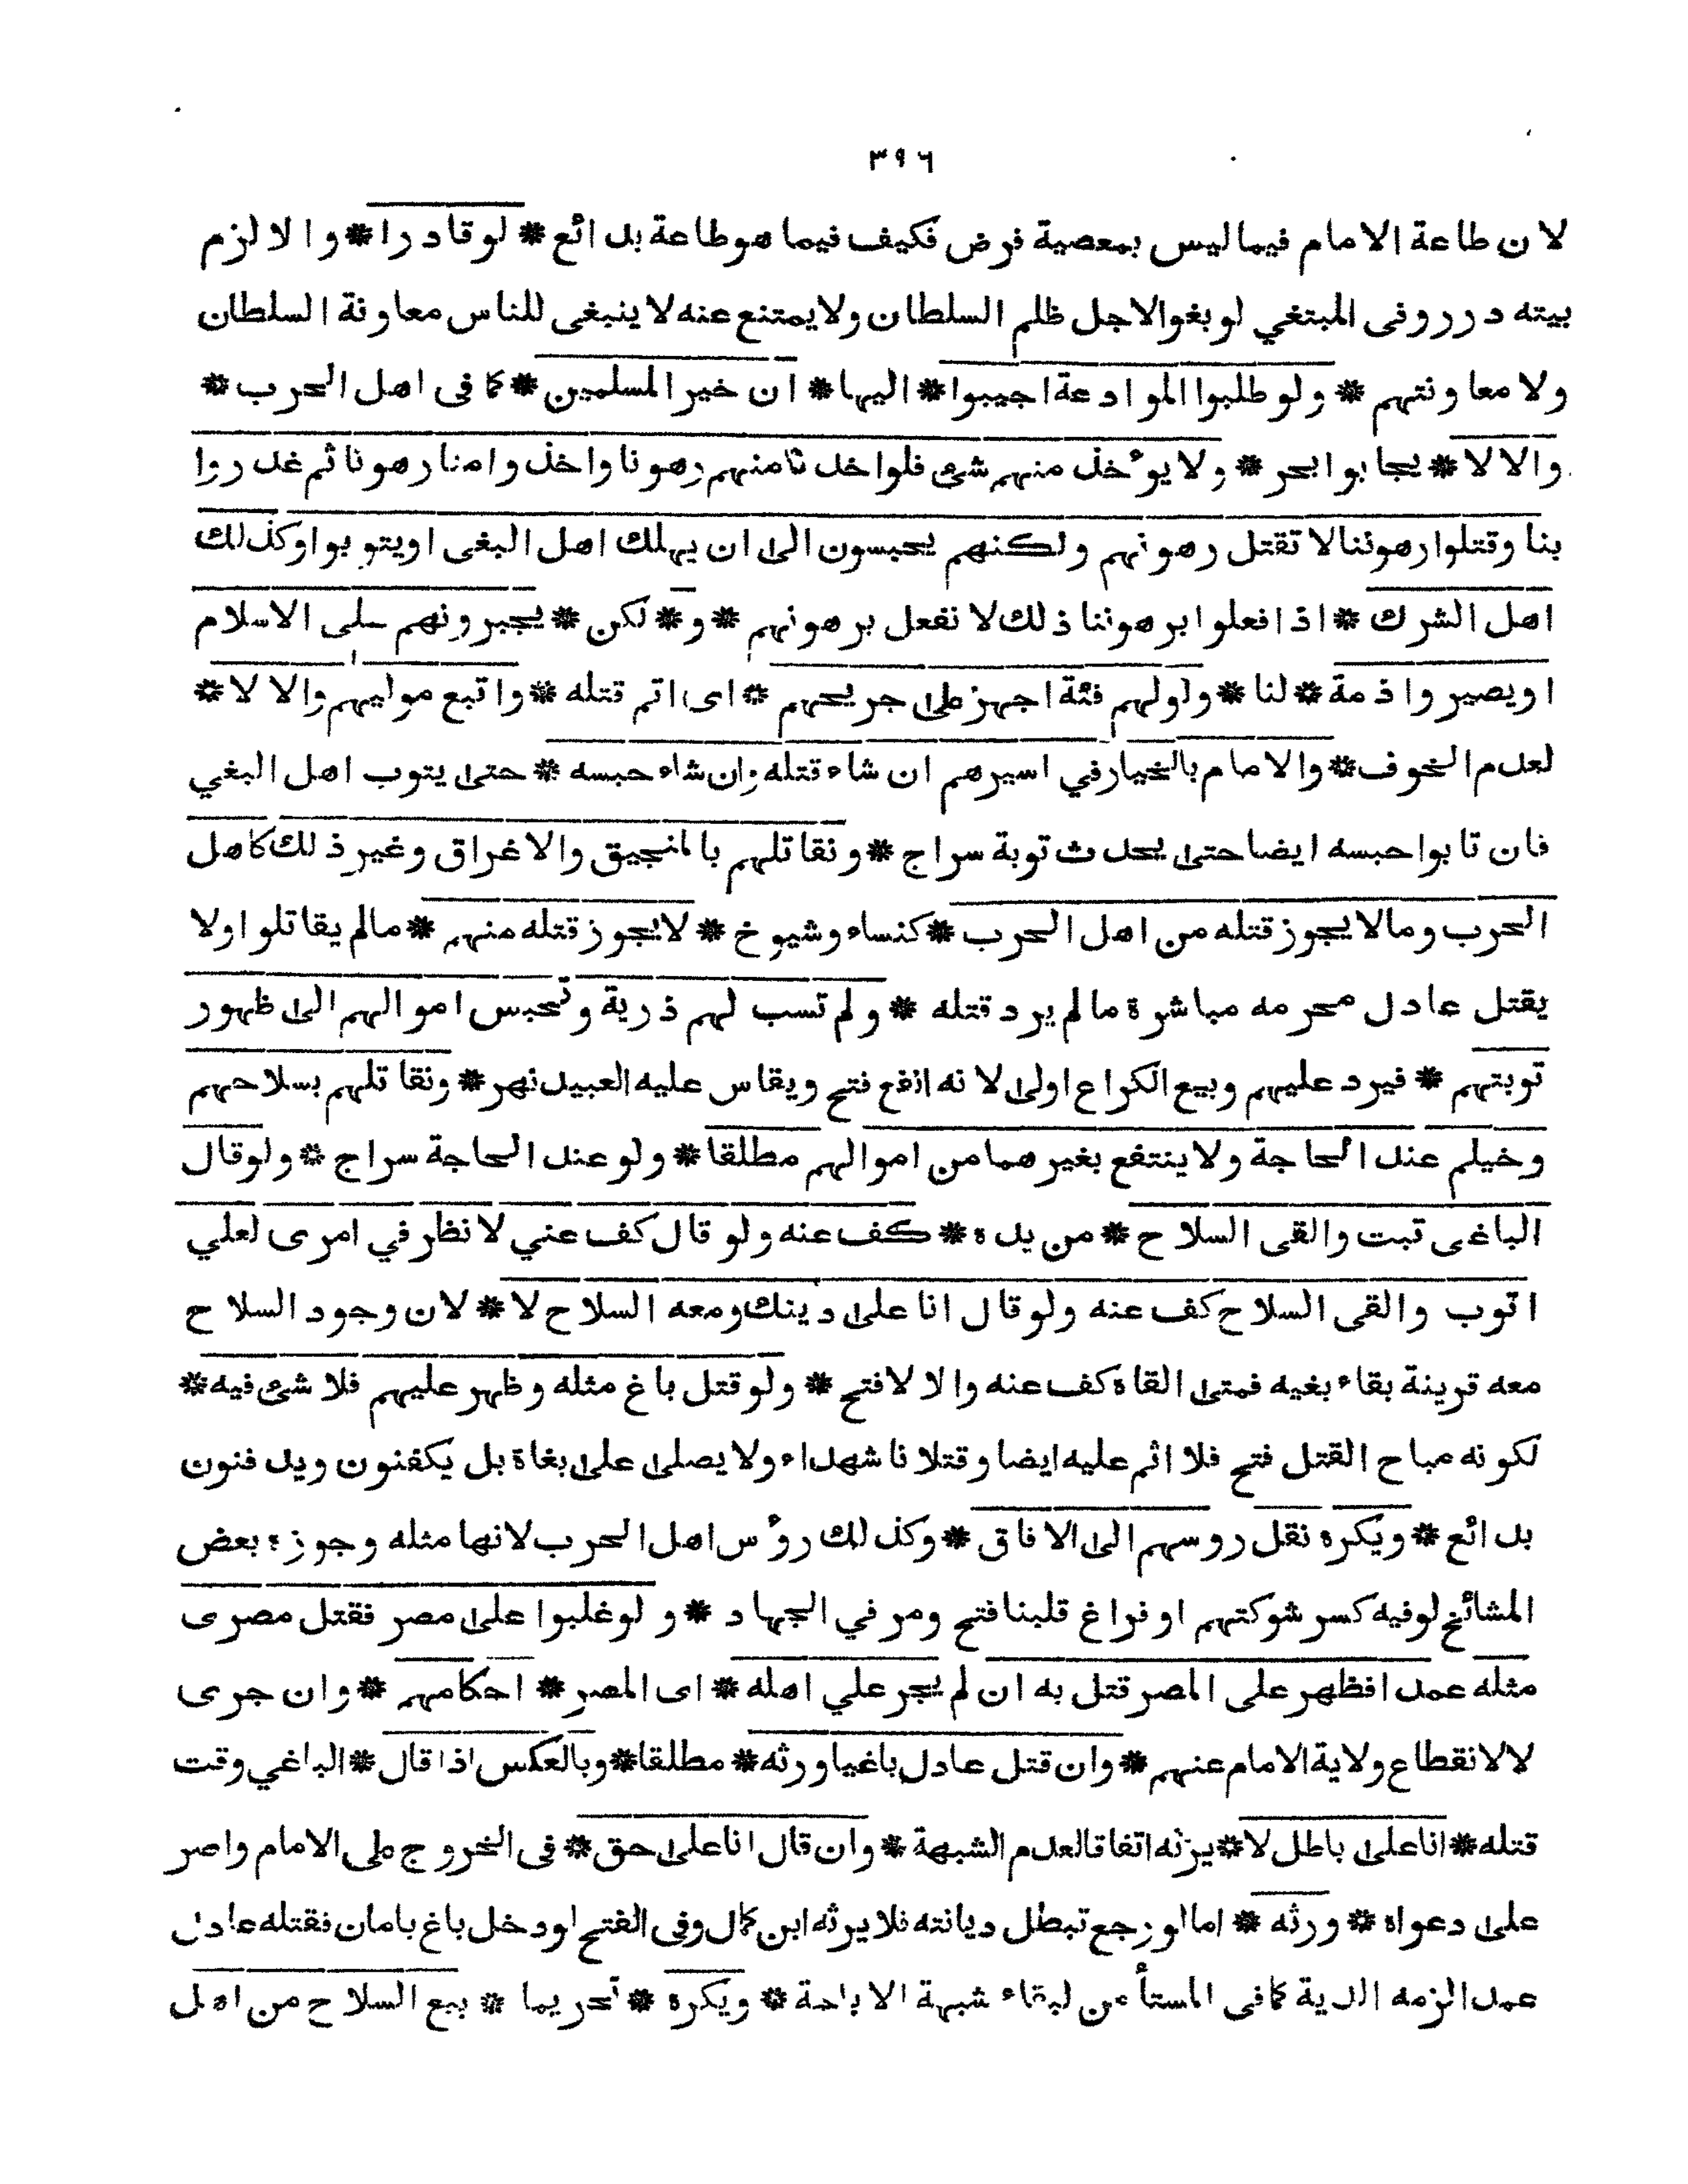 ٣٩٦
لان طاعة الامام فيما ليس بمعصية فرض فكيف فيما هو طاعة بدائع * لو قادرا * والا لزم
بيته درر وفى المبتغي لو بغوا لاجل ظلم السلطان ولا يمتنع عنه لا ينبغى للناس معاونة السلطان
ولا معاونتهم * ولو طلبوا الموادعة اجيبوا * اليها * ان خير المسلمين * كما فى اهل الحرب *
والا لا * يجابوا بحر * ولا يوٴخذ منهم شئ فلو اخذنا منهم رهونا واخذوا منا رهونا ثم غدروا
بنا وقتلوا رهوننا لا تقتل رهونهم ولكنهم يحبسون الى ان يهلك اهل البغى او يتوبوا وكذلك
اهل الشرك * اذا فعلوا برهوننا ذلك لا نفعل برهونهم * و * لكن * يجبرونهم على الاسلام
او يصيروا ذمة * لنا * ولو لهم فئة اجهز على جريحهم * اى اتم قتله * واتبع موليهم والا لا *
لعدم الخوف * والامام بالخيار في اسيرهم ان شاء قتله وان شاء حبسه * حتى يتوب اهل البغي
فان تابوا حبسه ايضا حتى يحدث توبة سراج * ونقاتلهم بالمنجيق والاغراق وغير ذلك كاهل
الحرب وما لا يجوز قتله من اهل الحرب * كنساء وشيوخ * لا يجوز قتله منهم * مالم يقاتلوا ولا
يقتل عادل محرمه مباشرة ما لم يرد قتله * ولم تسب لهم ذرية وتحبس اموالهم الى ظهور
توبتهم * فيرد عليهم وبيع الكراع اولى لانه انفع فتح ويقاس عليه العبيد نهر * ونقاتلهم بسلاحهم
وخيلم عند الحاجة ولا ينتفع بغيرهما من اموالهم مطلقا * ولو عند الحاجة سراج * ولو قال
الباغى تبت والقى السلاح * من يده * كف عنه ولو قال كف عني لانظر في امرى لعلي
اتوب والقى السلاح كف عنه ولو قال انا على دينك ومعه السلاح لا * لان وجود السلاح
معه قرينة بقاء بغيه فمتى القاه كف عنه والا لا فتح * ولو قتل باغ مثله وظهر عليهم فلا شئ فيه *
لكونه مباح القتل فتح فلا اثم عليه ايضا وقتلانا شهداء ولا يصلى على بغاة بل يكفنون ويدفنون
بدائع * ويكره نقل روسهم الى الافاق * وكذلك روٴس اهل الحرب لانها مثله وجوزه بعض
المشائخ لو فيه كسر شوكتهم او فراغ قلبنا فتح ومر في الجهاد * و لو غلبوا على مصر فقتل مصرى
مثله عمدا فظهر على المصر قتل به ان لم يجر علي اهله * اى المصر * احكامهم * وان جرى
لا لانقطاع ولاية الامام عنهم * وان قتل عادل باغيا ورثه * مطلقا * وبالعكس اذا قال * الباغي وقت
قتله * انا على باطل لا * يرثه اتفاقا لعدم الشبهة * وان قال انا على حق * فى الخروج على الامام واصر
على دعواه * ورثه * اما لو رجع تبطل ديانته فلا يرثه ابن كمال وفى الفتح لو دخل باغ بامان فقتله عادل
عمدا لزمه الدية كما فى المستأمن لبقاء شبهة الاباحة * ويكره * تحريما * بيع السلاح من اهل